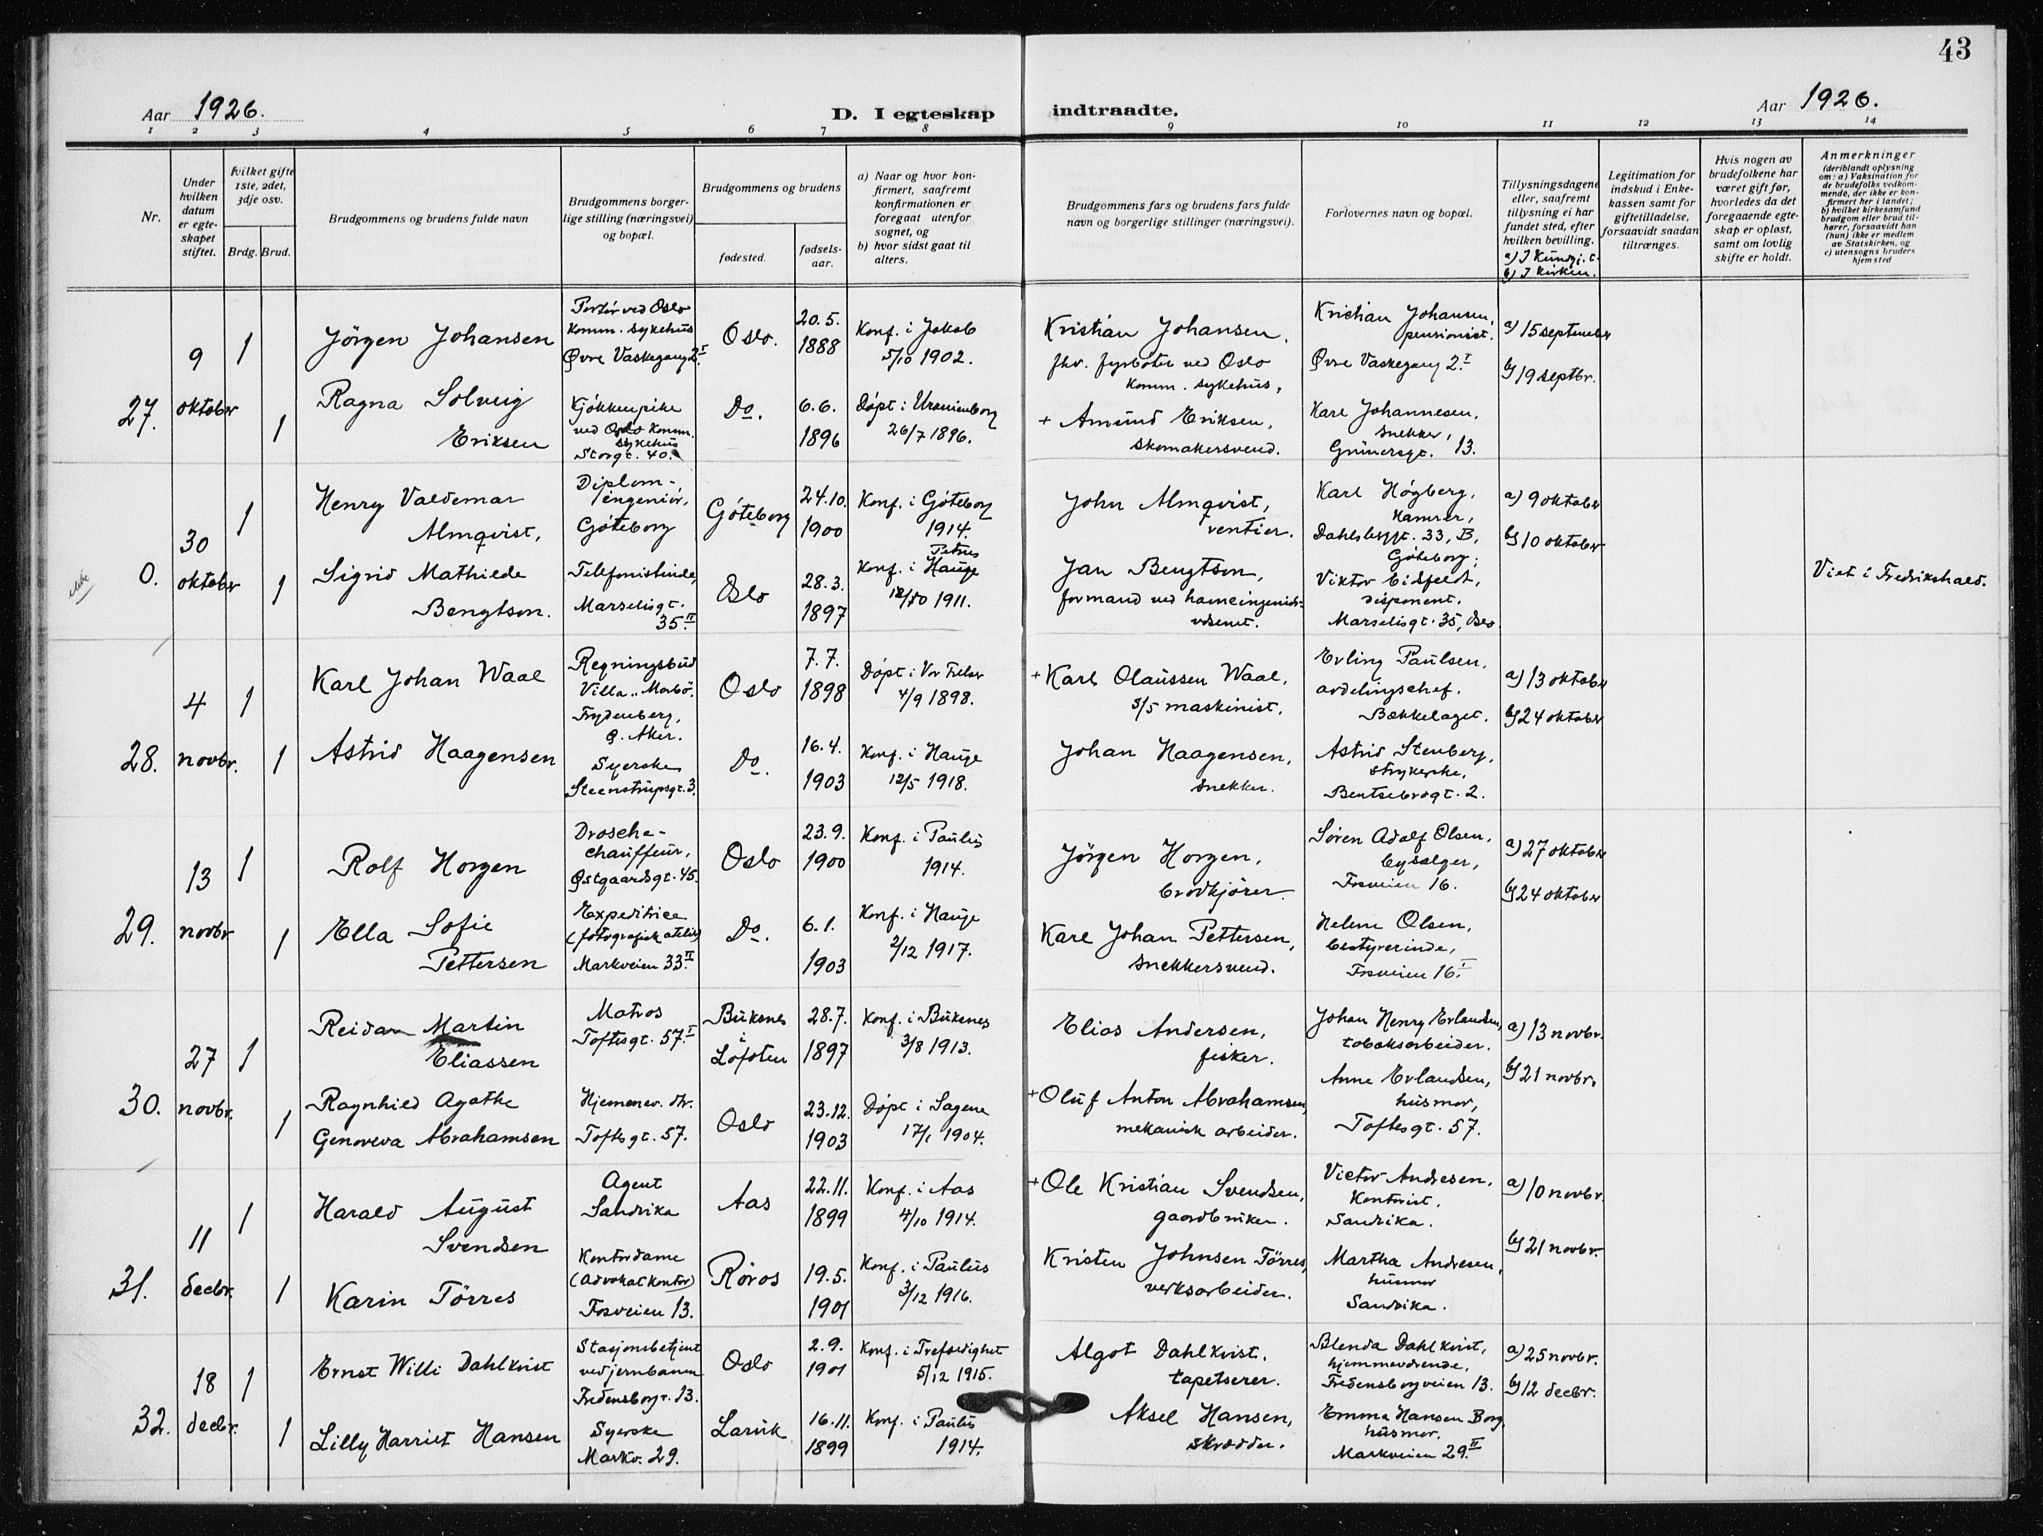 43
Aar 1926.
D. I egteskap indtraadte.
Aar 1926.
1 2 3 4 5 6 7 8 9 10 11 12 13 14
Nr.
Under hvilken datum er egteskapet stiftet.
Hvilket gifte 1ste, 2det, 3dje osv.
Brdg. Brud.
Brudgommens og brudens fulde navn
Brudgommens borgerlige stilling (næringsvei) og bopæl.
Brudgommens og brudens
fødested.
fødselsaar.
a) Naar og hvor konfirmert, saafremt konfirmationen er foregaat utenfor sognet, og
b) hvor sidst gaat til alters.
Brudgommens fars og brudens fars fulde navn og borgerlige stillinger (næringsvei).
Forlovernes navn og bopæl.
Tillysningsdagene eller, saafremt tillysning ei har fundet sted, efter hvilken bevilling.
a) I Kundj. t.
b) I Kirken.
Legitimation for indskud i Enkekassen samt for giftetilladelse, forsaavidt saadan tiltrænges.
Hvis nogen av brudefolkene har været gift før, hvorledes da det foregaaende egteskap er opløst, samt om lovlig skifte er holdt.
Anmerkninger
(deriblandt oplysning om: a) Vaksination for de brudefolks vedkommende, der ikke er konfirmert her i landet; b) hvilket kirkesamfund brudgom eller brud tilhører, forsaavidt han (hun) ikke er medlem av Statskirken, og c) utensogns bruders hjemsted
27.
9 oktober
1
Jörgen Johansen
Portör ved Oslo
Komm. sykehus
Øvre Vaskegang 2 I.
Oslo.
20.5.
1888
Konf. i Jakob
5/10 1902.
Kristian Johansen,
fhv. fyrböter ved Oslo
Komm. sykehus,
Kristian Johansen,
pensionist.
Øvre Vaskegang 2 I.
a) 15 september
b) 19 septbr.
1
Ragna Solveig
Eriksen
Kjökkenpike
ved Oslo Komm.
sykehus
Storgt. 40.
Do.
6.6.
1896
Döpt i Uranienborg
26/7 1896.
+ Amund Eriksen,
skomakersvend.
Karl Johannesen,
snekker,
Grünersgt. 13.
0.
30 oktober
1
Henry Valdemar
Almqvist,
Diplom-
ingeniör,
Göteborg
Göteborg
24.10.
1900
Konf. i Göteborg
1914.
John Almqvist,
rentier.
Karl Högberg,
Kamrer,
Dahlsbergt. 33, B,
Göteborg;
a) 9 oktober
b) 10 oktober
1
Sigrid Mathilde
Bengtson.
Telefonistinde,
Marselisgt.
35 II.
Oslo
28.3.
1897
Konf. i Petrus
Hauge
1911.
Jan Bengtson,
formand ved havneingeniör-
vesenet.
Viktor Eidfeldt,
disponent.
Marselisgt. 35, Oslo
Viet i Fredrikshald.
28.
4 novbr.
1
Karl Johan Waal
Regningsbud
Villa "Morbö",
Frydenberg,
Ø. Aker.
Oslo
7.7.
1898
Döpt i Vor Frelser
4/9 1898.
+ Karl Olaussen Waal,
s/s maskinist.
Erling Paulsen,
avdelingschef.
Bækkelaget.
a) 13 oktober
b) 24 oktober
1
Astrid Haagensen
Syerske
Steenstrupsgt. 3.
Do.
16.4.
1903
Konf. i Hauge
12/5 1918.
Johan Haagensen,
snekker.
Astrid Stenberg,
strykerske,
Bentsebrogt. 2.
29.
13 novbr.
1
Rolf Horgen
Drosche-
chauffeur,
Østgaardsgt. 45.
Oslo
23.9.
1900
Konf. i Paulus
1914.
Jörgen Horgen,
brödkjörer.
Sören Adolf Olsen,
bysælger,
Fosveien 16.
a) 27 oktober
b) 24 oktober
1
Ella Sofie
Pettersen
Expeditrice
(fotografisk atelier)
Markveien 33 II.
Do.
6.1.
1903
Konf. i Hauge
2/12 1917.
Karl Johan Pettersen,
snekkersvend.
Helene Olsen,
bestyrerinde,
Fosveien 16 I.
30.
27 novbr.
1
Reidar Martin
Eliassen
Matros
Toftesgt. 57 I
Buksnes
i
Lofoten
28.7.
1897
Konf. i Buksnes
3/8 1913.
Elias Andersen,
fisker.
Johan Henry Erlandsen,
tobaksarbeider.
a) 13 novbr.
b) 21 novbr.
1
Ragnhild Agathe
Genoveva Abrahamsen
Hjemmev. dtr.
Toftesgt. 57.
Oslo
23.12.
1903
Döpt i Sagene
17/1 1904.
+ Oluf Anton Abrahamsen,
mekanisk arbeider.
Anne Erlandsen,
husmor,
Toftesgt. 57.
31.
11 decbr.
1
Harald August
Svendsen
Agent
Sandvika
Aas
22.11.
1899
Konf. i Aas
4/10 1914.
+ Ole Kristian Svendsen,
gaardbruker.
Victor Andresen,
Kontorist.
Sandvika.
a) 10 novbr.
b) 21 novbr.
1
Karin Törres
Kontordame
(Advokatkontor)
Fosveien 13.
Röros
19.5.
1901
Konf. i Paulus
3/12 1916.
Kristen Johnsen Törres,
verksarbeider.
Martha Andresen,
husmor
Sandvika.
32.
18 decbr.
1
Ernst Willi Dahlkvist
Stasjonsbetjent
ved jernbanen
Fredensborgv. 13.
Oslo
2.9.
1901
Konf. i Trefoldighet
5/12 1915.
Algot Dahlkvist,
tapetserer.
Blenda Dahlkvist,
hjemmeværende,
Fredensborgveien 13.
a) 25 novbr.
b) 12 decbr.
1
Lilly Harriet Hansen
Syerske
Markv. 29.
Larvik
16.11.
1899
Konf. i Paulus
1914.
Aksel Hansen,
skrædder.
Emma Hansen Borg,
husmor.
Markveien 29 II.